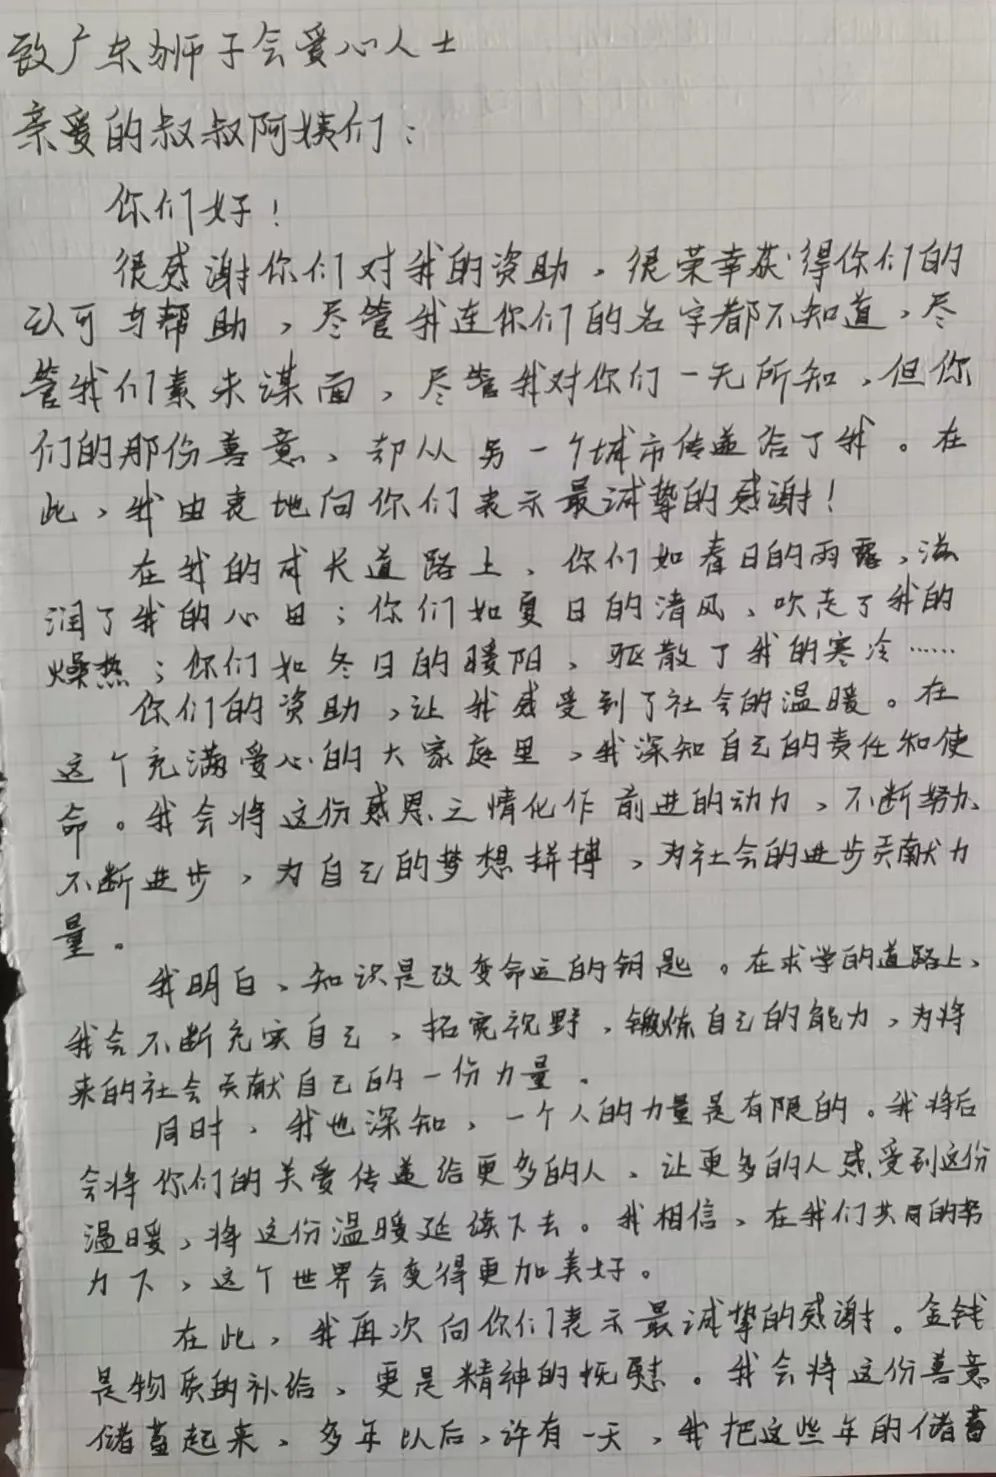 致广东狮子会爱心人士
亲爱的叔叔阿姨们：
你们好！
很感谢你们对我的资助，很荣幸获得你们的
认可与帮助，尽管我连你们的名字都不知道，尽
管我们素未谋面，尽管我对你们一无所知，但你
们的那份善意，却从另一个城市传递给了我。在
此，我由衷地向你们表示最诚挚的感谢！
在我的成长道路上，你们如春日的雨露，滋
润了我的心田；你们如夏日的清风，吹走了我的
燥热；你们如冬日的暖阳，驱散了我的寒冷……
你们的资助，让我感受到了社会的温暖。在
这个充满爱心的大家庭里，我深知自己的责任和使
命。我会将这份感恩之情化作前进的动力，不断努力、
不断进步，为自己的梦想拼搏，为社会的进步贡献力
量。
我明白，知识是改变命运的钥匙。在求学的道路上，
我会不断充实自己，拓宽视野，锻炼自己的能力，为将
来的社会贡献自己的一份力量。
同时，我也深知，一个人的力量是有限的。我将后
会将你们的关爱传递给更多的人，让更多的人感受到这份
温暖，将这份温暖延续下去。我相信，在我们共同的努
力下，这个世界会变得更加美好。
在此，我再次向你们表示最诚挚的感谢。金钱
是物质的补给，更是精神的抚慰。我会将这份善意
储蓄起来，多年以后，许有一天，我把这些年的储蓄